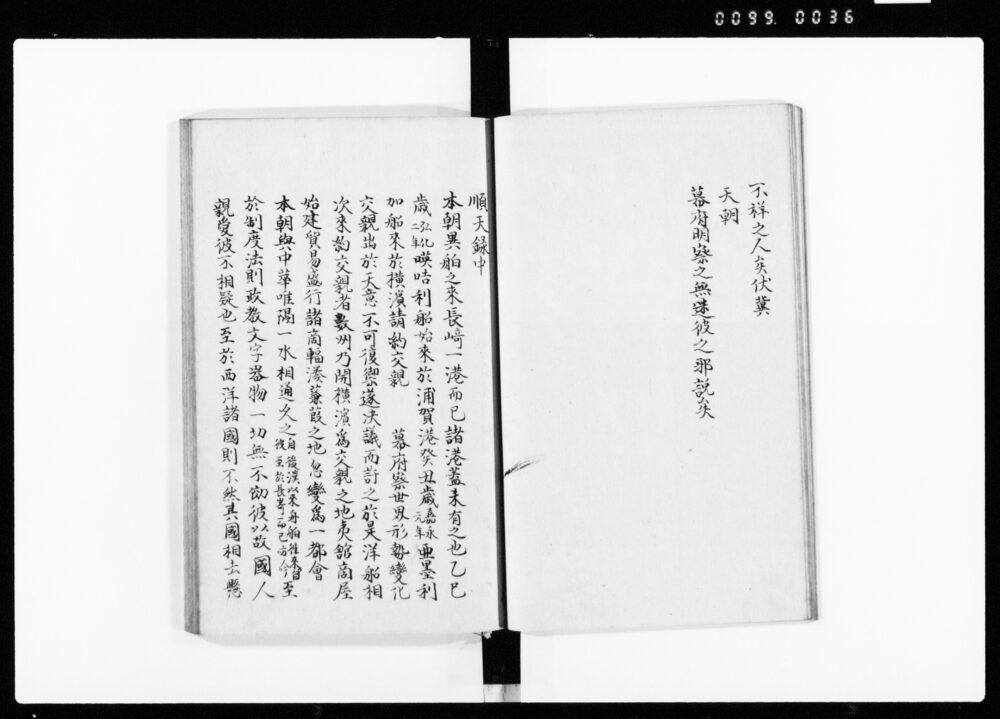 0099. 0036
不祥之人矣伏冀
天朝
幕府明察之無迷彼之邪說矣
順天録中
本朝異舶之来長﨑一港而已諸港蓋未有之也乙巳
歳弘化二年暎咭利船始来於浦賀港癸丑歳嘉永元年亜墨利
加船来於横濱請約交親 幕府察世界形勢變化
交親出於天意不可復禦遂決議而許之於是洋船相
次来約交親者數州乃開横濱爲交親之地夷舘商屋
始建貿易盛行諸商輻湊蒹葭之地忽變爲一都會
本朝與中華唯隔一水相通久之自後漢以来舟舶往来自後至於長﨑而已方今至
於制度法則政教文字器物一切無不倣彼以故國人
親愛彼不相疑也至於西洋諸國則不然其國相去懸